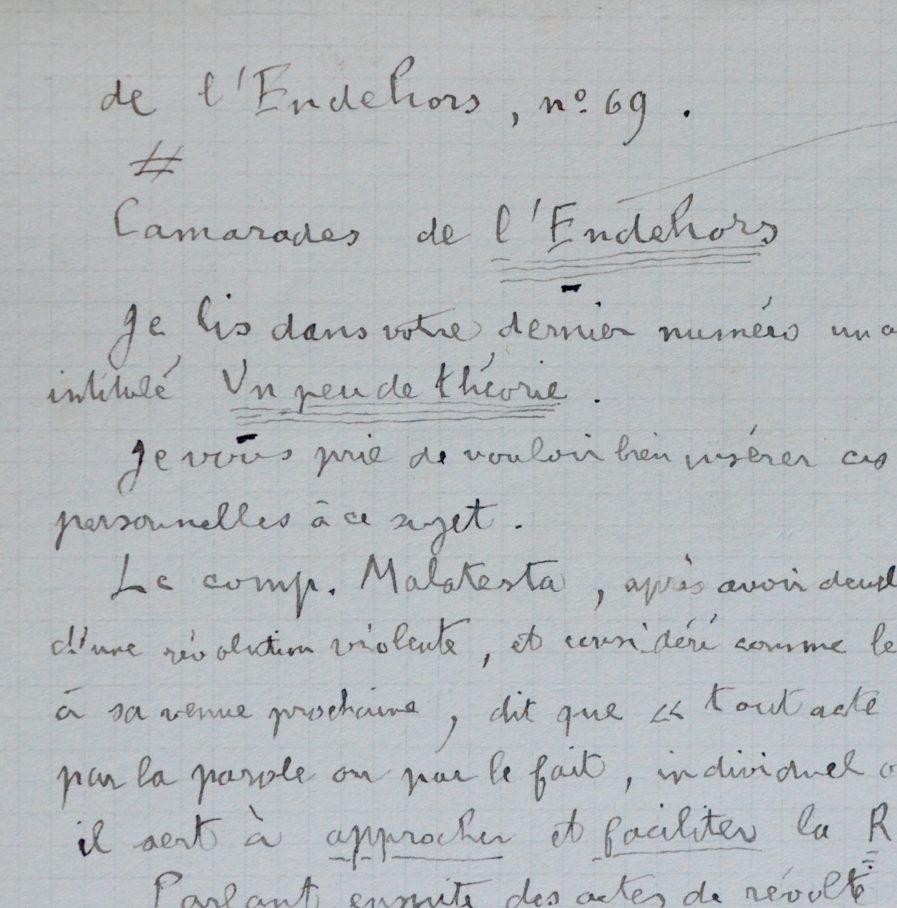 de l'Endehors, nº 69.
#
Camarades de l'Endehors
Je lis dans votre dernier numéro un a
intitulé Un peu de théorie.
Je vous prie de vouloir bien insérer ces
personnelles à ce sujet.
Le comp. Malatesta, après avoir
d'une révolution violente, et considéré comme le
à sa venue prochaine, dit que « tout acte
par la parole ou par le fait, individuel o
il sert à approcher et faciliter la R
Parlant ensuite des actes de révolte